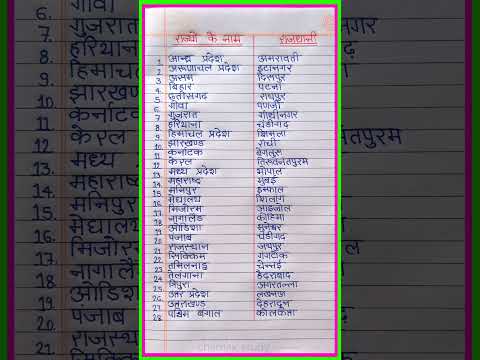 6. गोवा
7. गुजरात
8. हरियाणा
9. हिमाचल
10. झारखण्ड
11. कर्नाटक
12. केरल
13. मध्य
14. महाराष्ट्र
15. मणिपुर
16. मेघालय
17. मिजोरम
18. नागालैं
19. ओडिशा
20. पंजाब
21. राजस्थ
राज्यों के नाम राजधानी
1. आन्ध्र प्रदेश अमरावती
2. अरुणाचल प्रदेश इटानगर
3. असम दिसपुर
4. बिहार पटना
5. छत्तीसगढ़ रायपुर
6. गोवा पणजी
7. गुजरात गाँधीनगर
8. हरियाणा चंडीगढ़
9. हिमाचल प्रदेश शिमला
10. झारखण्ड राँची
11. कर्नाटक बेंगलुरु
12. केरल तिरुवनंतपुरम
13. मध्य प्रदेश भोपाल
14. महाराष्ट्र मुंबई
15. मणिपुर इम्फाल
16. मेघालय शिलांग
17. मिजोरम आइजोल
18. नागालैंड कोहिमा
19. ओडिशा भुनेश्वर
20. पंजाब चंडीगढ़
21. राजस्थान जयपुर
22. सिक्किम गंगटोक
23. तमिलनाडु चेन्नई
24. तेलंगाना हैदराबाद
25. त्रिपुरा अगरतल्ला
26. उत्तर प्रदेश लखनऊ
27. उत्तराखण्ड देहरादून
28. पश्चिम बंगाल कोलकता
chamak study
नगर
ढ़
तपुरम